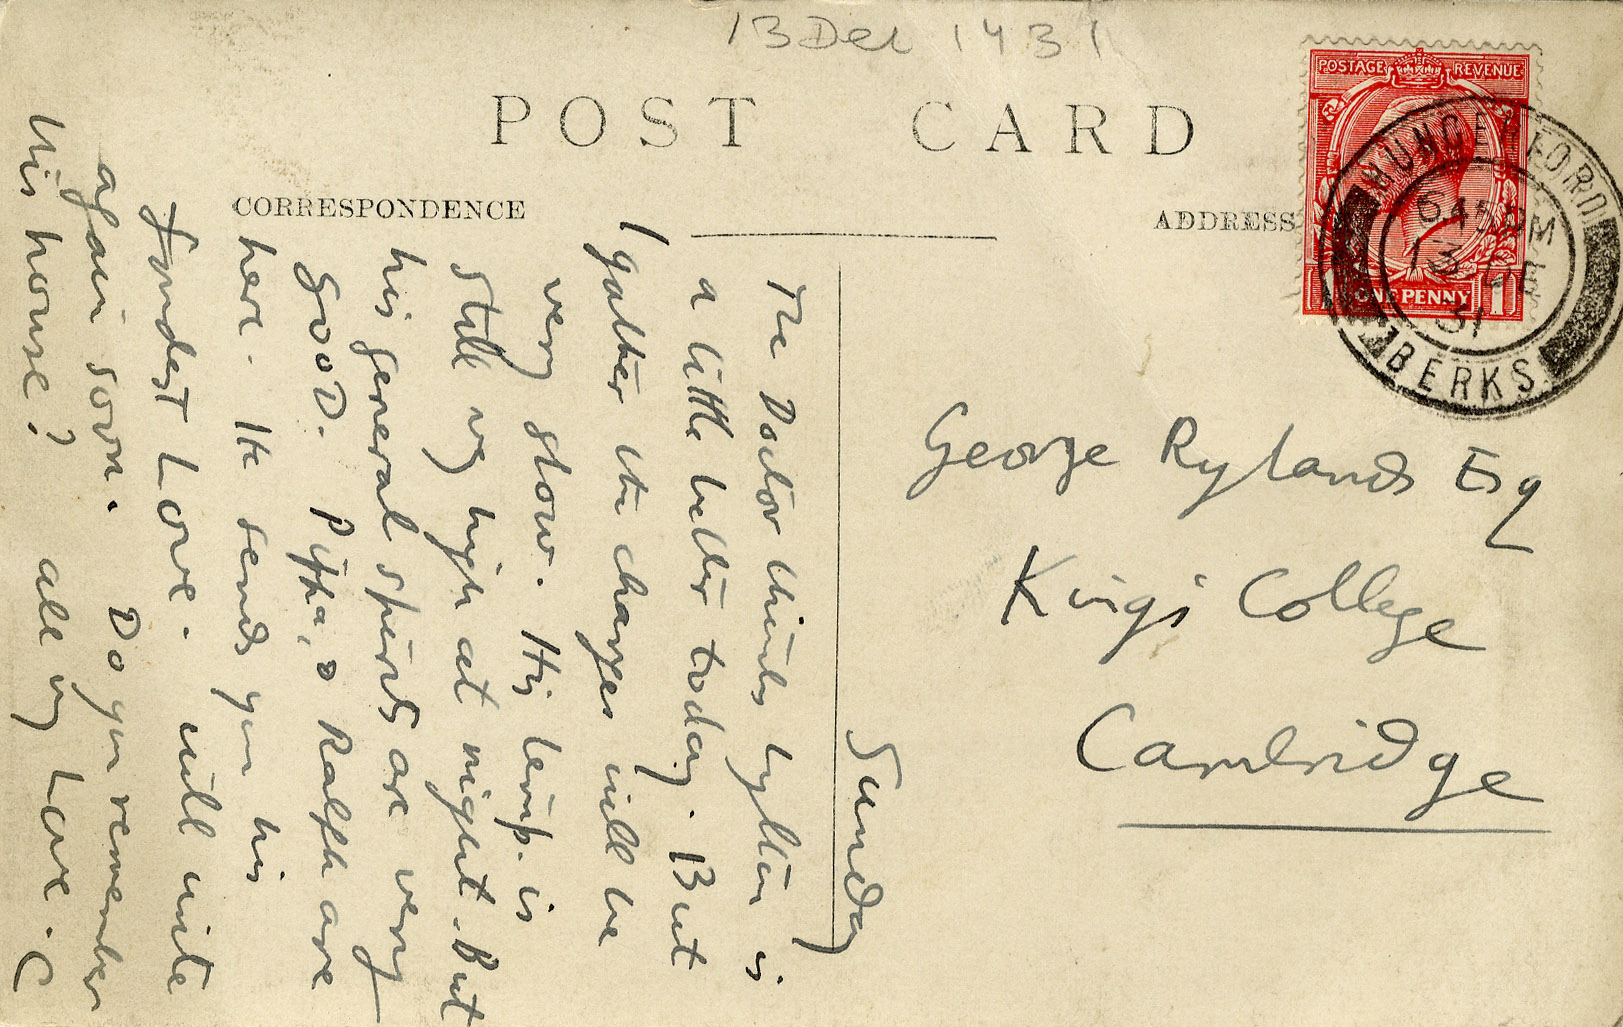 13 Dec 1931
POST CARD
CORRESPONDENCE
ADDRESS
POSTAGE REVENUE
ONE PENNY 1
HUNGERFORD
6.45 PM
13 DE
31
BERKS
Sunday
The Doctor thinks Lytton is
a little better today. But
I gather the changes will be
very slow. His temp. is
still vy high at night. But
his general spirits are very
GOOD. Pippa, & Ralph are
here. He sends you his
fondest Love. will write
again soon. Do you remember
this house? all my Love. C
George Rylands Esq
King's College
Cambridge